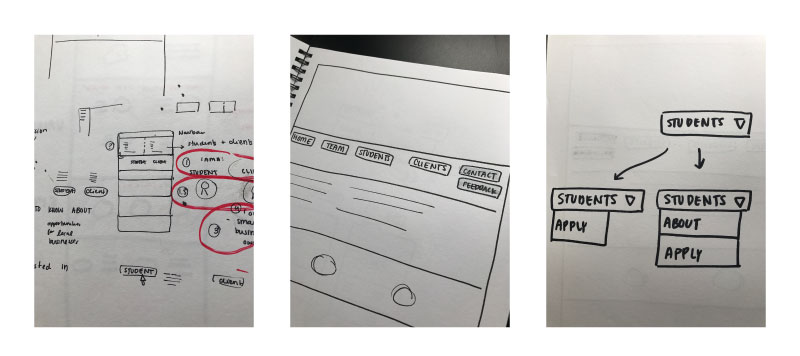 students + clients
I AM A:
STUDENT
student
client
TO KNOW ABOUT
opportunities
for local
businesses
STUDENT
client
HOME
TEAM
STUDENTS
CLIENTS
CONTACT
FEEDBACK
STUDENTS
STUDENTS
APPLY
STUDENTS
ABOUT
APPLY